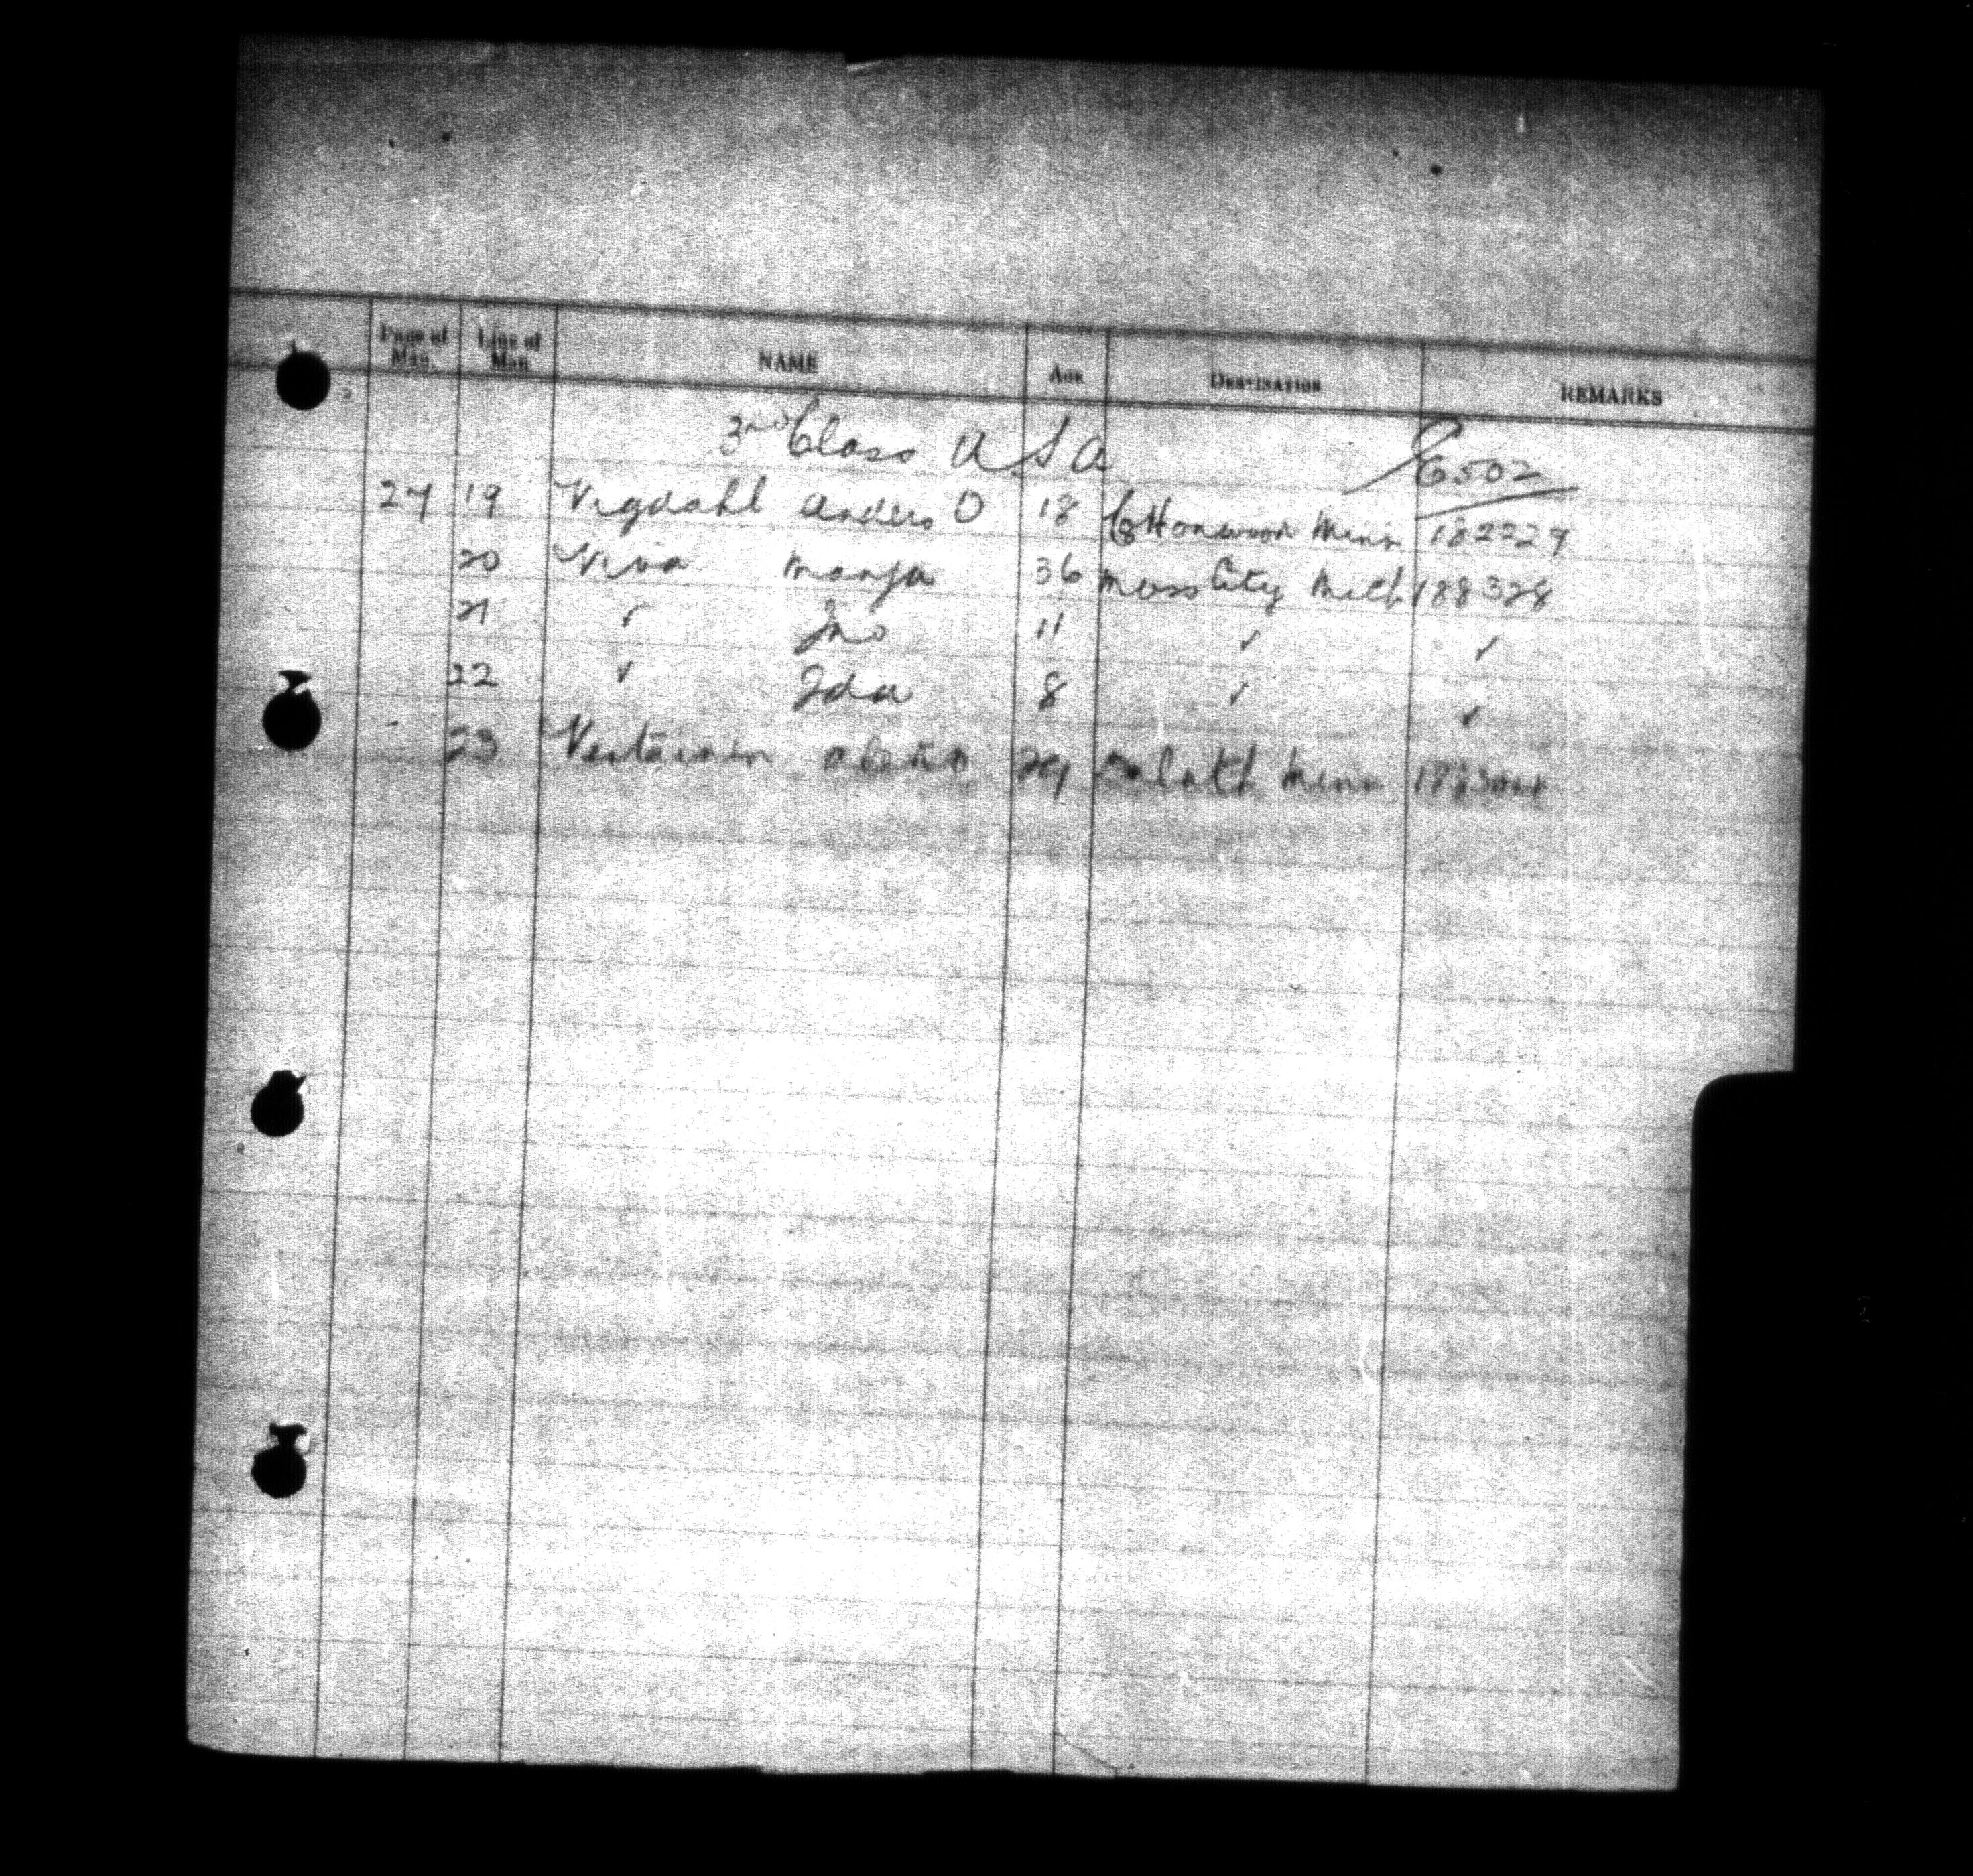 Page of Man. Line of Man NAME AGE DESTINATION REMARKS
3rd Class U S A 6502
27 19 Vigdahl Anders O 18 Cottonwood Minn 182227
20 Niva Manja 36 Mass City Mich 188328
21 ✓ Jno 11 ✓ ✓
22 ✓ Ida 8 ✓ ✓
23 29 Duluth Minn